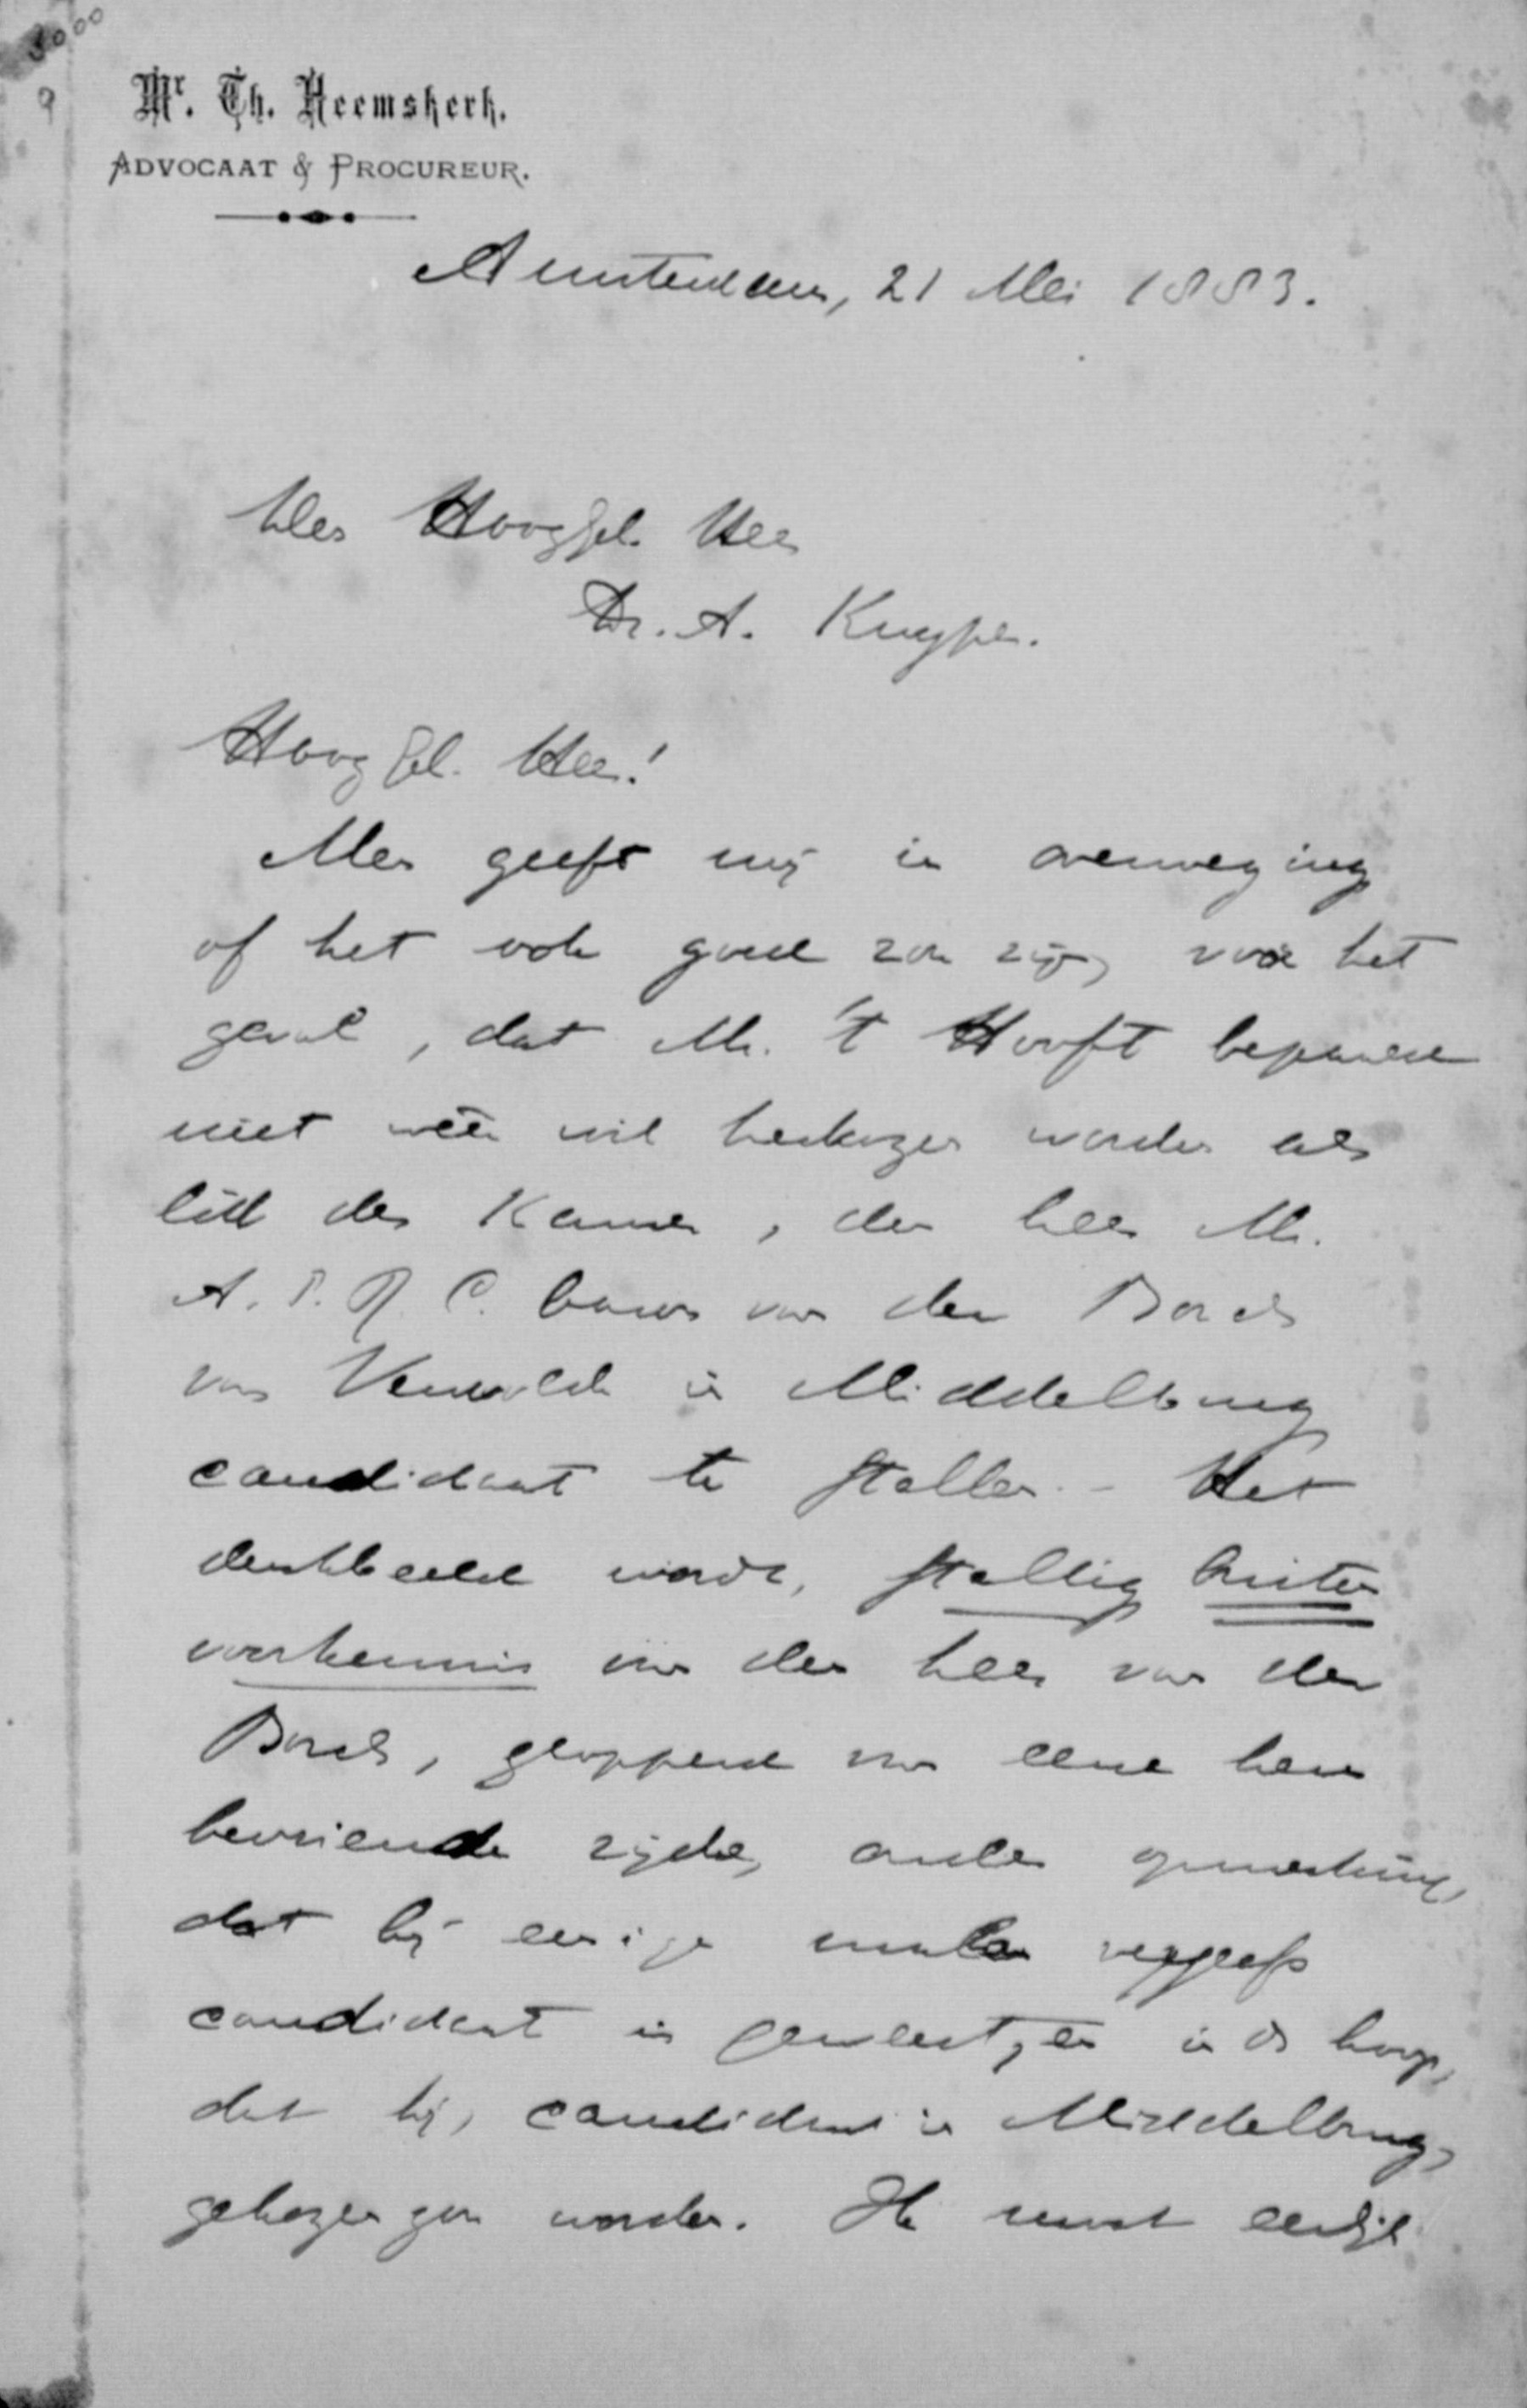 3000
9
Mr. Th. Heemskerk.
ADVOCAAT & PROCUREUR.
Amsterdam, 21 Mei 1883.
Den Hooggel. Heer
Dr. A. Kuyper.
Hooggel. Heer!
Men geeft mij in overweging
of het ook goed zou zijn, voor het
geval, dat Mr. 't Hooft bepaald
niet weêr wil herkozen worden als
lid der Kamer, den heer Mr.
A. P. R. C. baron van der Borch
van Verwolde in Middelburg
candidaat te stellen. - Het
denkbeeld wordt, stellig buiten
voorkennis van den heer van der
Borch, geopperd van eene hem
bevriende zijde, onder opmerking,
dat hij eenige malen vergeefs
candidaat is geweest, en in de hoop,
dat hij, candidaat in Middelburg,
gekozen zou worden. Ik moet eerlijk